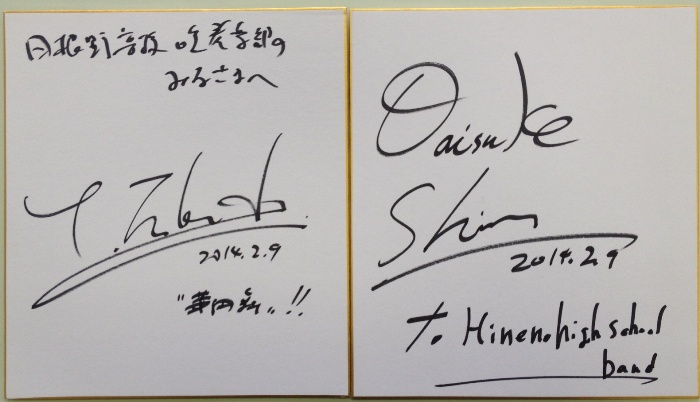 日根野高校 吹奏楽部の
みなさまへ
2014.2.9
Daisuke
Shim
2014.2.9
To Hineno high school
band